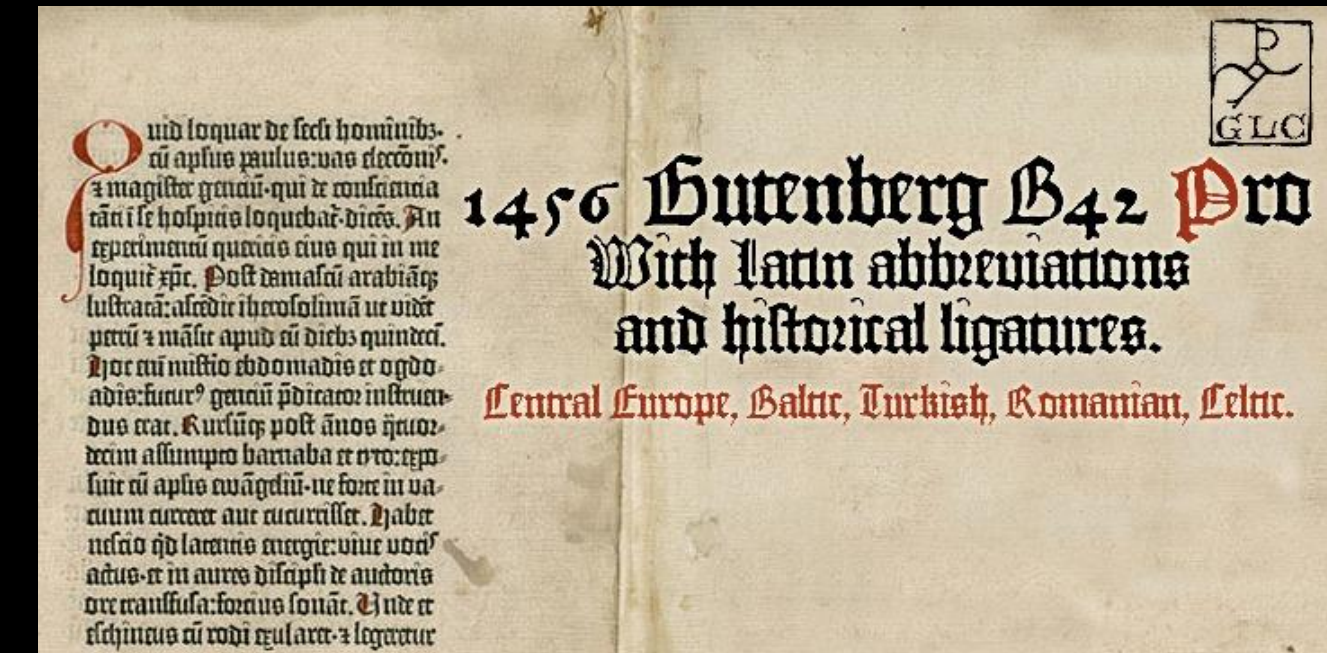 Quid loquar de ſecli hominibꝫ·
cū apl̄us paulus:vas eleccōnis·
⁊ magiſter genciū·qui de conſciencia
tāti ī ſe hoſpitis loquebat̄·dicēs. An
experimentū queritis eius qui in me
loquit̄ xp̄c. Poſt damaſcū arabiāqꝫ
luſtratā:aſcēdit iheroſolimā ut vidēt
petrū ⁊ māſit apud eū diebꝫ quindecī.
Hoc enī miſtio ebdomadis et ogdo-
adis:futurꝰ genciū p̄dicator inſtruen-
dus erat. Rurſūqꝫ poſt ānos q̄tuor-
decim aſſumpto barnaba et tyto:expo-
ſuit cū aplis ewāgeliū·ne forte in va-
cuum curreret aut cucurriſſet. Habet
neſcio qd̄ latentis energie:vive vocis
actus·et in aures diſcipli de auctoris
ore tranſfuſa:forcius ſonāt. Unde et
eſchineus cū rodi exularet·⁊ legeretur
P
GLC
1456 Gutenberg B42 Pro
With Latin abbreviations
and hiſtorical ligatures.
Central Europe, Baltic, Turkish, Romanian, Celtic.